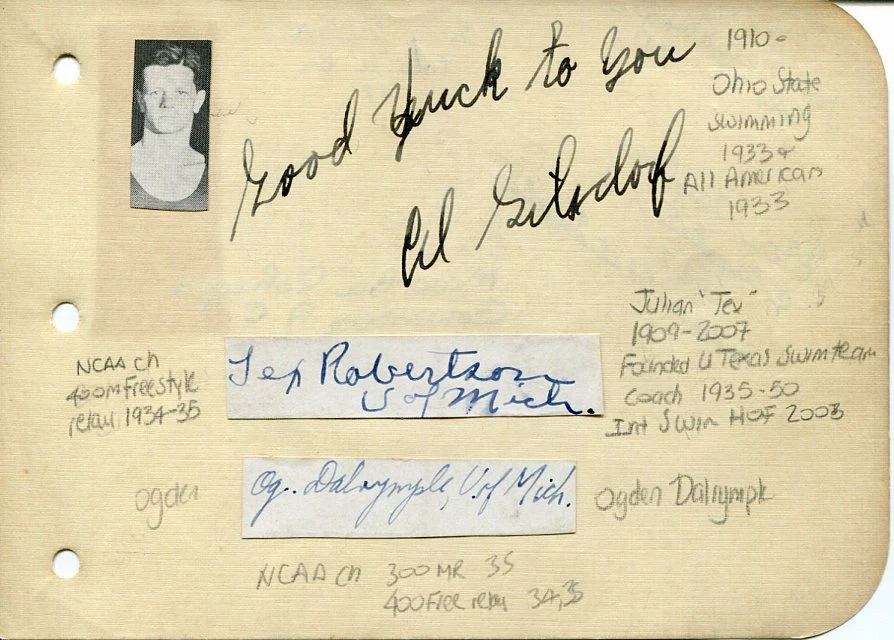 Good Luck to You
Al Gilsdorf
1910-
Ohio State
swimming
1933+
All American
1933
NCAA ch
400m Freestyle
relay 1934-35
Tex Robertson
U of Mich.
Julian "Tex"
1909-2007
Founded U Texas Swim team
Coach 1935-50
Int Swim HOF 2003
Ogden
Og.. Dalrymple, U. of Mich.
Ogden Dalrymple
NCAA ch 300 MR 35
400 Free relay 34,35